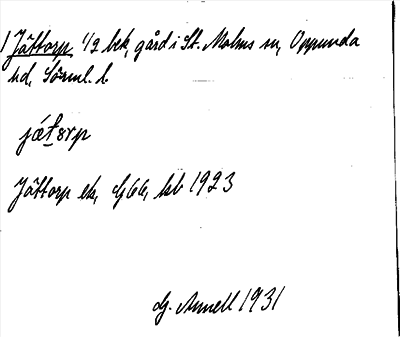 1 Jättorp 1/2 bek, gård i St. Malms sn, Oppunda
hd, Sörml. l.
jǽt̲ɜrp
Jättorp ek, Gj 66, bl 1923
G. Annell 1931